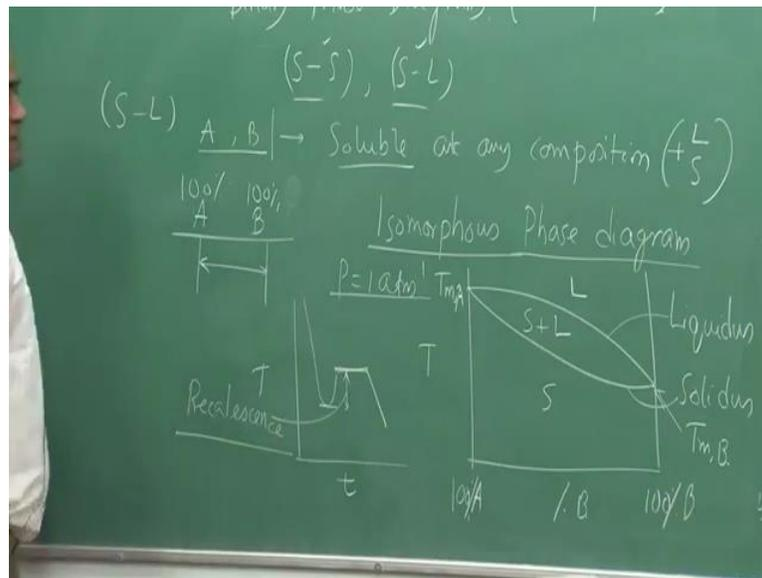 Binary Phase Diagrams
(S-S), (S-L)
(S-L)
A, B → Soluble at any composition (+ L S)
100% 100%
A B
Isomorphous Phase diagram
P=1 atm
Tm,A
L
S+L
Liquidus
T
T
S
Solidus
Recalescence
Tm,B
t
100%A
%B
100%B